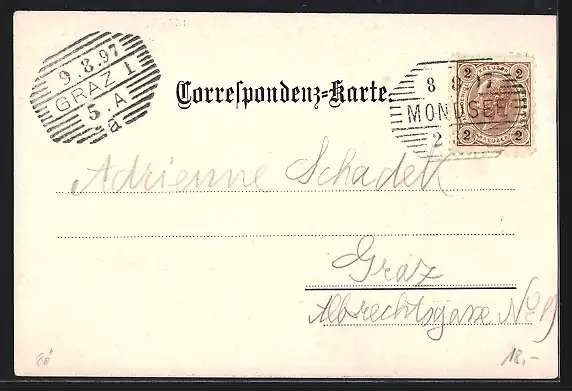 9.8.97
GRAZ 1
5.A
a
Correspondenz=Karte.
8 8 97
MONDSEE
2
2 2
2 2
KREUZER
Adrienne Schadek
Graz
Albrechtsgasse No 19
18,-